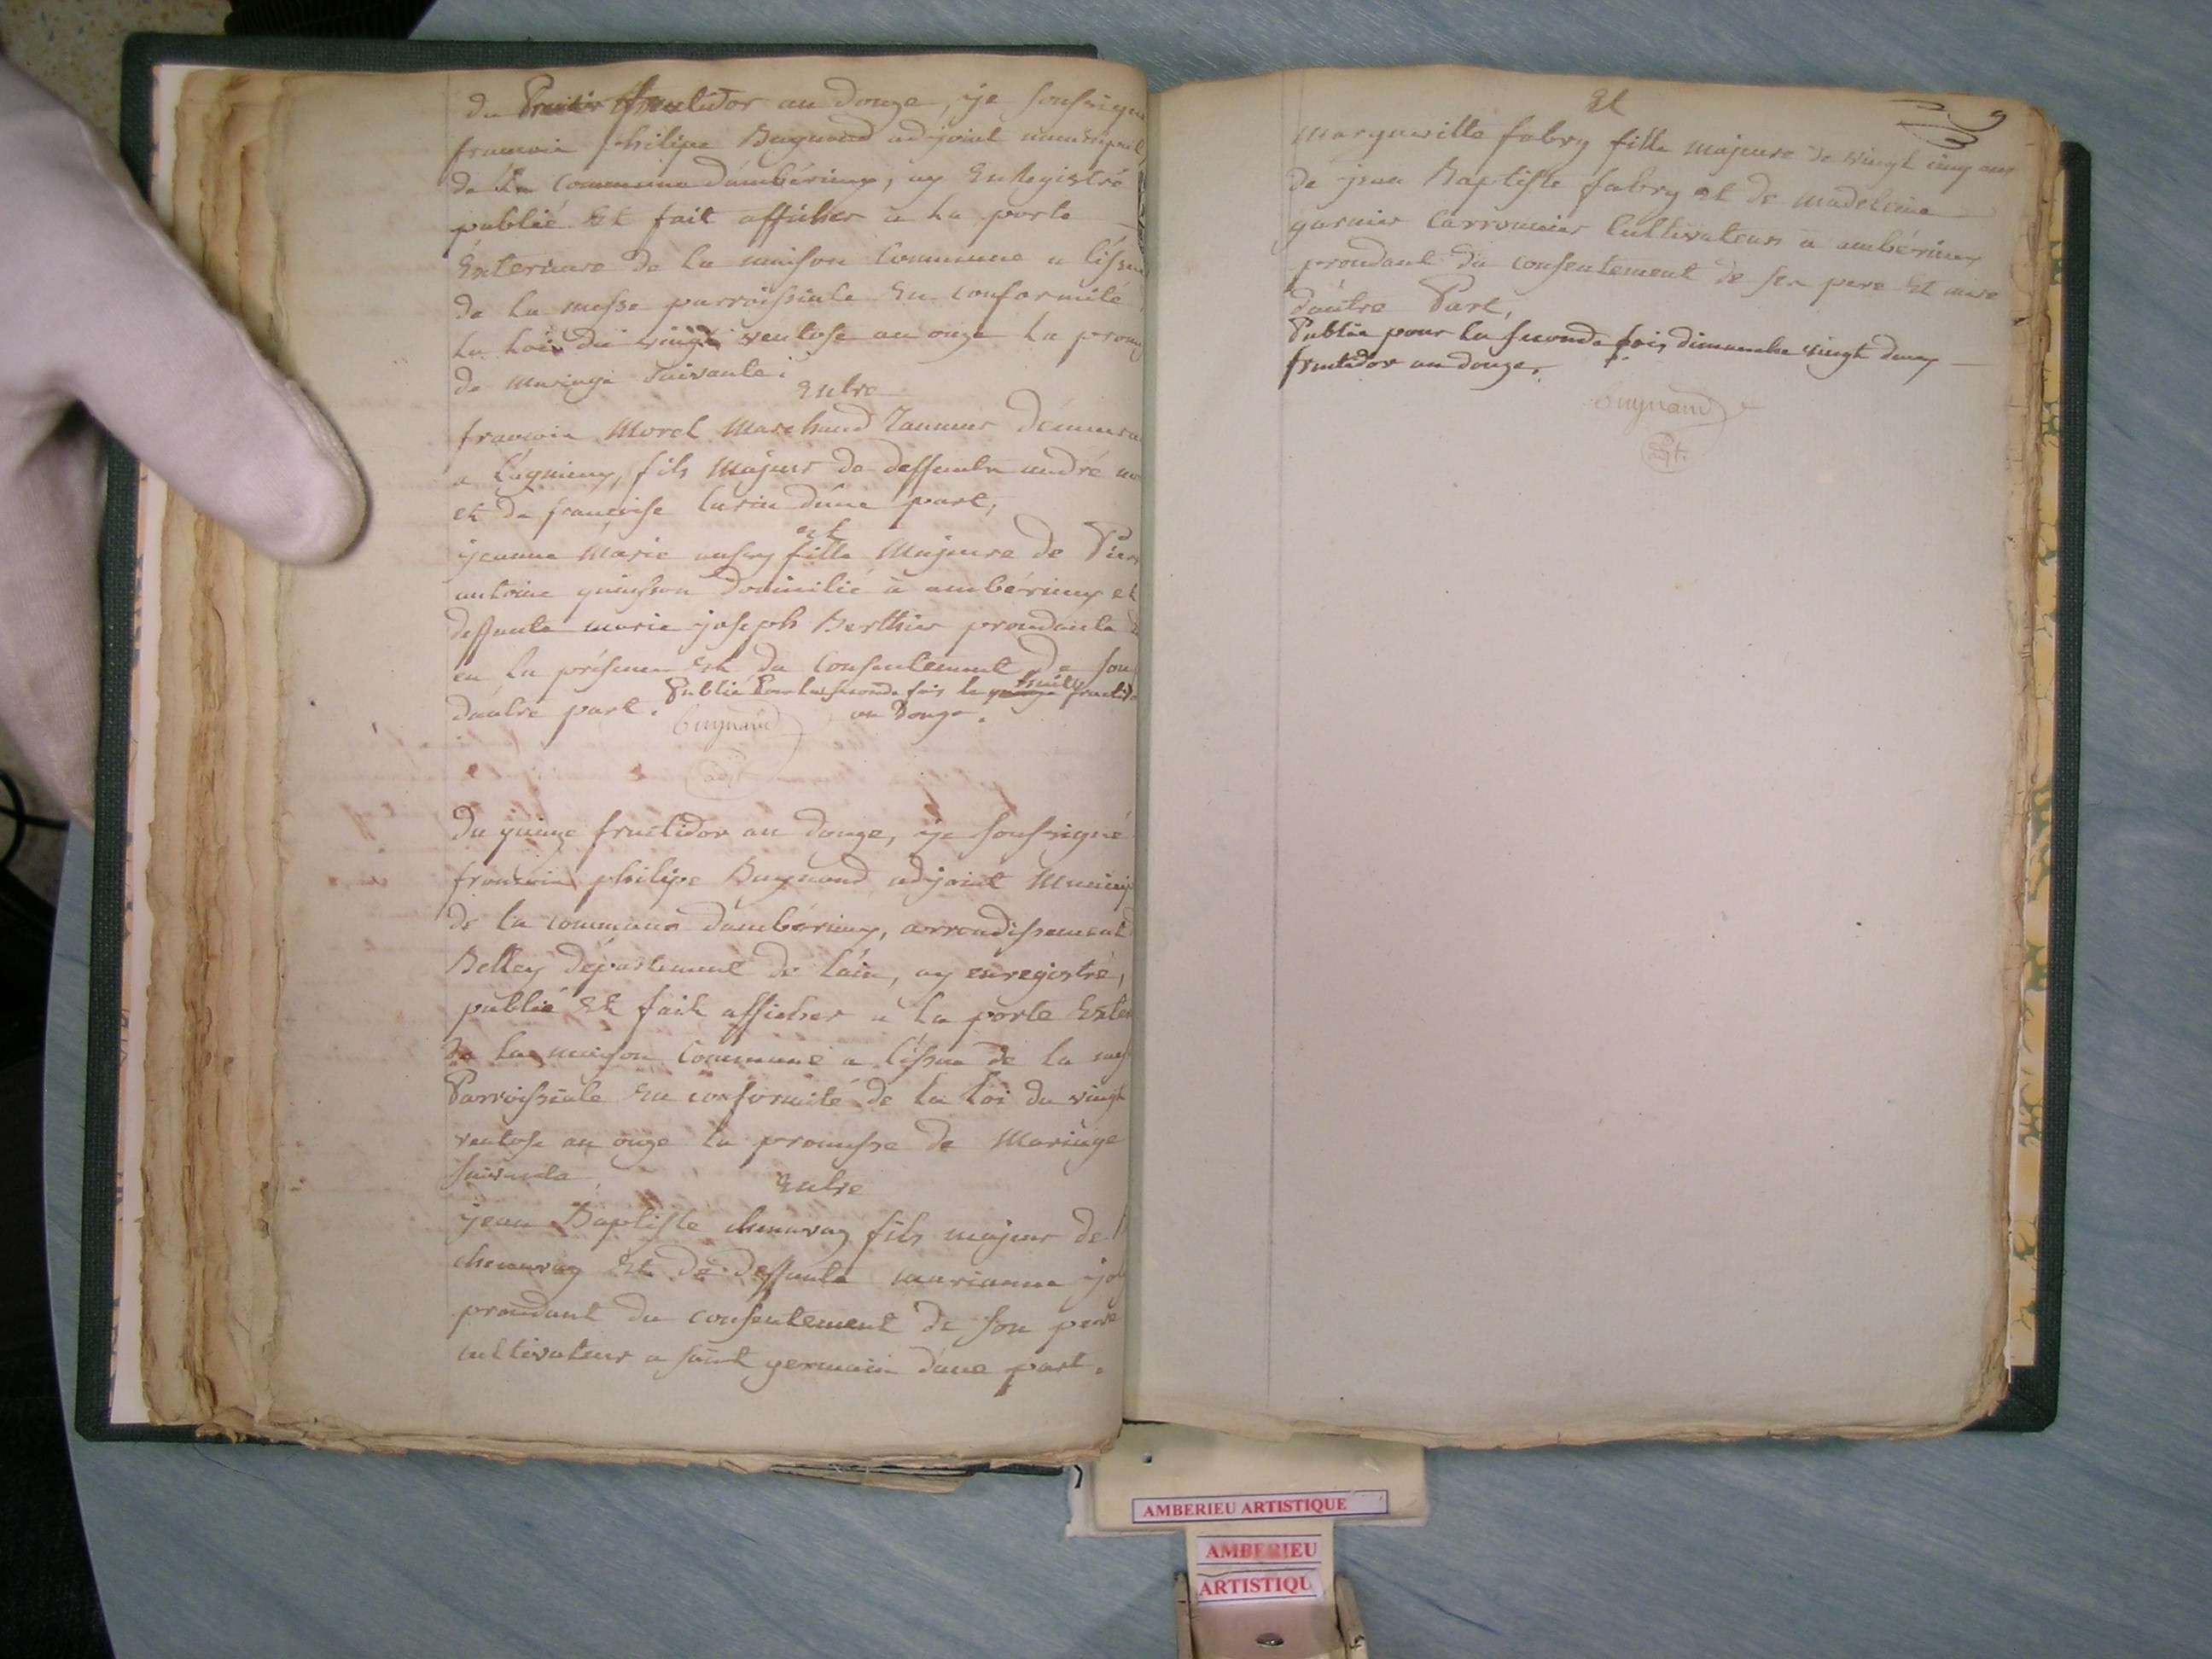 du Premier fructidor an douze, je soussigné
francois philipe Bugnand adjoint municipal
de la Commune d'ambérieux, ay Enregistré
publié Et fait afficher a la porte
Exterieure de la maison Commune a l'issue
de la messe parroissiale En conformité
la loi du vingt ventose an onze la prom
de Mariage suivante:
Entre
francois Morel Marchand Tanneur demeura
a Lagnieux, fils Majeur de deffunts andré mo
et de francoise d'une part,
et
jeanne Marie fille Majeure de Pierr
antoine domicilié à ambérieux et
deffunte marie joseph Berthier procedante d
en la présence Et du Consentement de son
d'autre part. Publié Pour la seconde fois le huit fructid
an douze.
Bugnand
adjt
du quinze fructidor an douze, je soussigné
francois philipe Bugnand adjoint Municip
de la commune d'ambérieux, arrondissement d
Belley département de l'ain, ay enregistré,
publié Et fait afficher a la porte Exter
de la maison Commune a l'issue de la mess
Parroissiale En conformité de la loi du vingt
ventose an onze la promesse de Mariage
suivante
Entre
jean Baptiste chenavaz fils majeur de
chenavaz Et de deffunte marianne joly
procedant du consentement de son pere
cultivateur a saint germain d'une part.
9
Et
Margueritte fabry fille majeure de vingt cinq ans
de jean Baptiste fabry et de Madeleine
garnier Carronnier Cultivateur à ambérieux
procedant du consentement de ses pere Et mere
d'autre Part,
Publié pour la seconde fois dimanche vingt deux
fructidor an douze.
Bugnand
adjt.
AMBERIEU ARTISTIQUE
AMBERIEU
ARTISTIQU